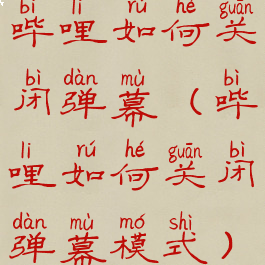 bì li rú hé guān
哔哩如何关
bì dàn mù bì
闭弹幕（哔
li rú hé guān bì
哩如何关闭
dàn mù mó shì
弹幕模式）